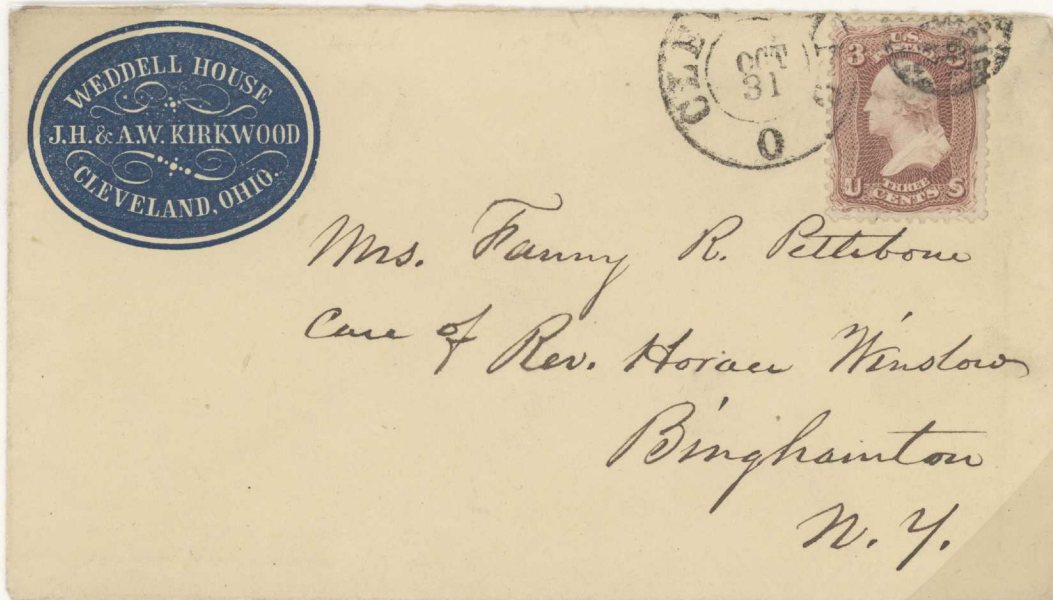 WEDDELL HOUSE
J.H. & A.W. KIRKWOOD
CLEVELAND, OHIO.
OCT
31
O
3
U.S.
U
THREE
CENTS
S
Mrs. Fanny R. Pettibone
Care of Rev. Horace Winslow
Binghamton
N. Y.